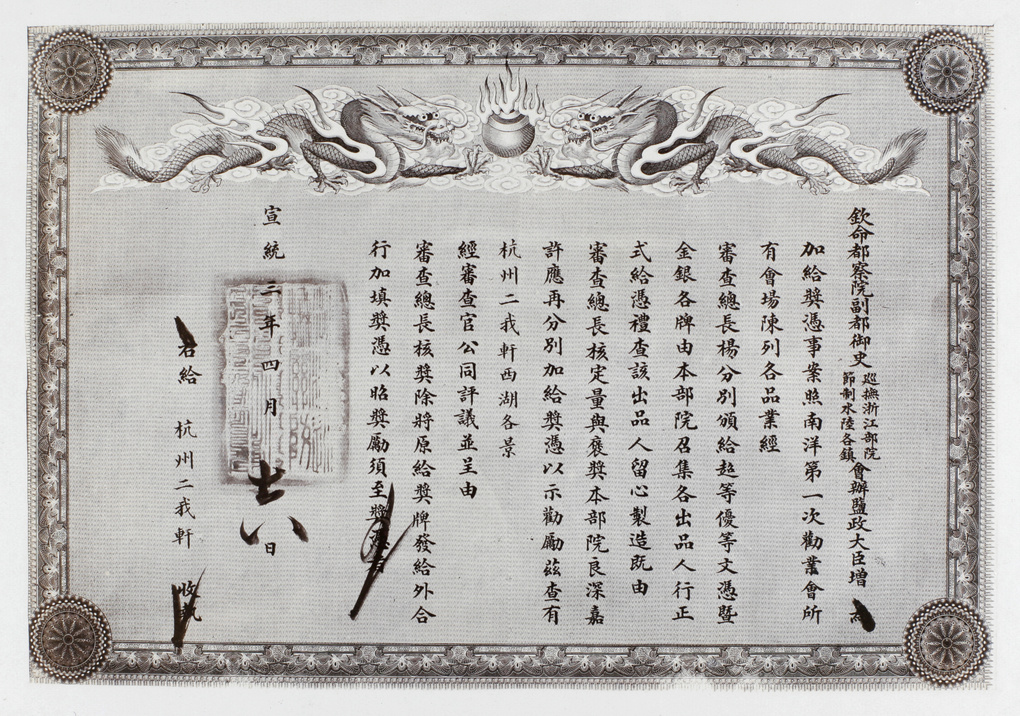 欽命都察院副都御史巡撫浙江部院節制水陸各鎮會辦鹽政大臣增 為
加給獎憑事案照南洋第一次勸業會所
有會場陳列各品業經
審查總長楊分別頒給超等優等文憑暨
金銀各牌由本部院召集各出品人行正
式給憑禮查該出品人留心製造既由
審查總長核定量與褒獎本部院良深嘉
許應再分別加給獎憑以示勸勵茲查有
杭州二我軒西湖各景
經審查官公同評議並呈由
審查總長核獎除將原給獎牌發給外合
行加填獎憑以昭獎勵須至獎憑者
宣統三年四月十八日
右給 杭州二我軒 收執